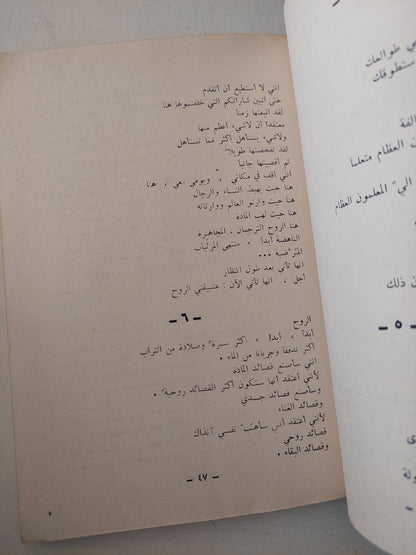 انني لا أستطيع أن أتقدم
حتى أتبين شاراتكم التي خلفتموها هنا
لقد اتبعتها زمنا
معتقدا أن لا شيء أعظم منها
ولا شيء يستأهل أكثر مما تستأهل
لقد تفحصتها طويلاً
ثم أقصيتها جانباً
انني أقف في مكاني ، ويومي معي ، هنا
هنا حيث يهبط النساء والرجال
هنا حيث وارثو العالم ووارثاته
هنا حيث لهب المادة
هنا الروح الترجمان ، المجاهرة
الناهضة أبداً ، منتهى المرئيات
المترضية ...
انها تأتي بعد طول انتظار
أجل ، انها تأتي الآن : عشيقتي الروح
- ٦ -
الروح
أبداً ، أبداً ، أكثر سمرة وصلادة من التراب
أكثر تدفقا وجريانا من الماء .
انني سأصنع قصائد المادة
لأنني أعتقد أنها ستكون أكثر القصائد روحية
وسأصنع قصائد جسدي
وقصائد الفناء
لأنني أعتقد أنني سأهب نفسي آنذاك
قصائد روحي
وقصائد البقاء .
- ٤٧ -
ي طوالعك
ستطوقك
الفة
ن العظام متعلما
الي المعلمون العظام
ن ذلك
- ٥ -
ى
ولة